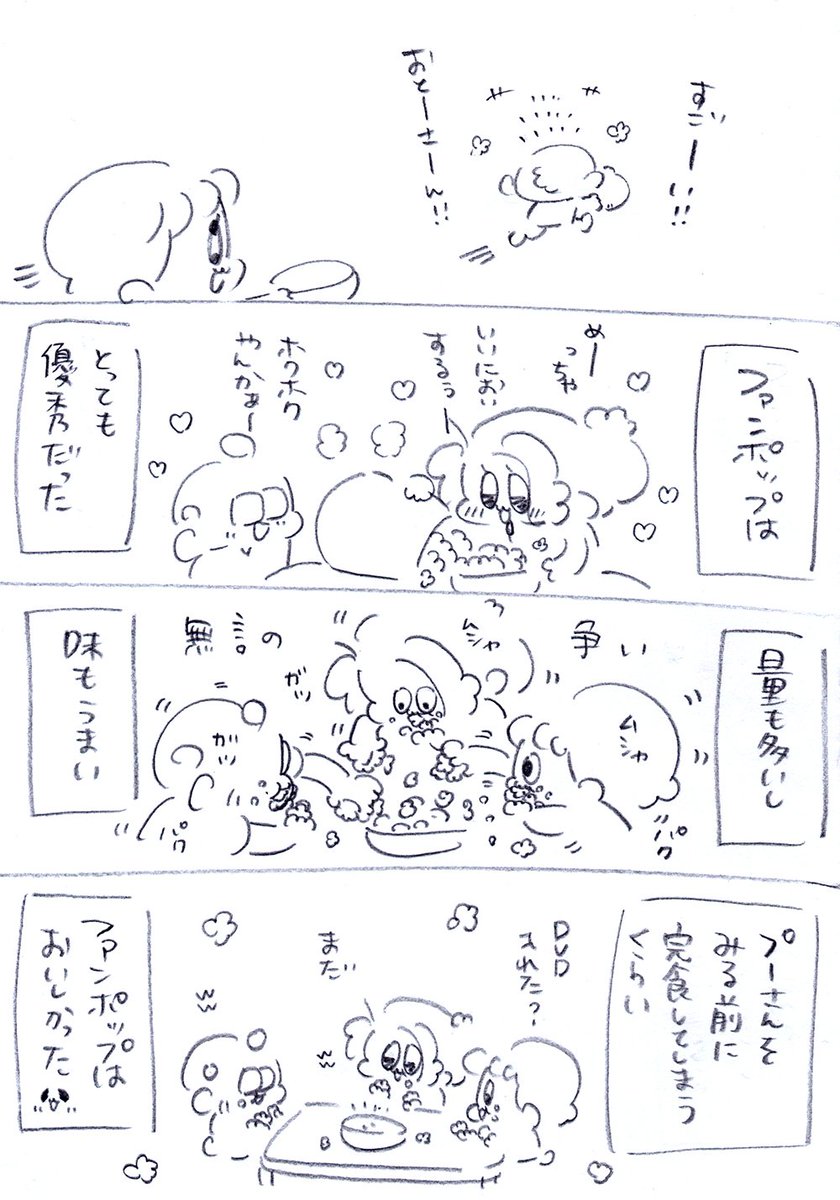 すごーい!!
おとーさーん!!
ファンポップは
めーっちゃ
いいにおい
するぅー
ホクホク
やんかぁー
とっても
優秀だった
量も多いし
争い
ムシャ
ムシャ
パク
無言の
ガツ
ガツ
パク
味もうまい
プーさんを
みる前に
完食してしまう
くらい
DVD
入れた?
まだ
ファンポップは
おいしかった